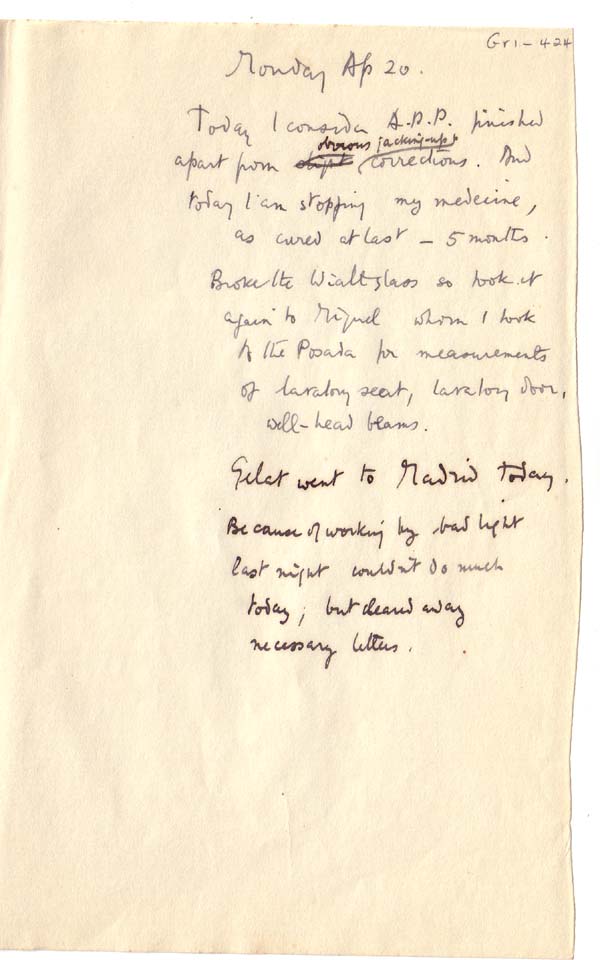 Gr1-424
Monday Ap 20.
Today I consider A.P.P. finished
obvious 'jacking-up'
apart from slight corrections. And
today I am stopping my medecine,
as cured at last – 5 months.
Broke the glass so took it
again to Miguel whom I took
to the Posada for measurements
of lavatory seat, lavatory door,
well-head beams.
Gelat went to Madrid today.
Because of working by bad light
last night couldn't do much
today; but cleared away
necessary letters.